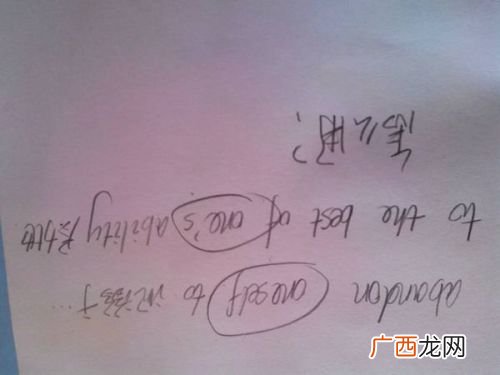 abandon oneself to 沉溺于...
to the best of one's ability
怎么用?
广西龙网